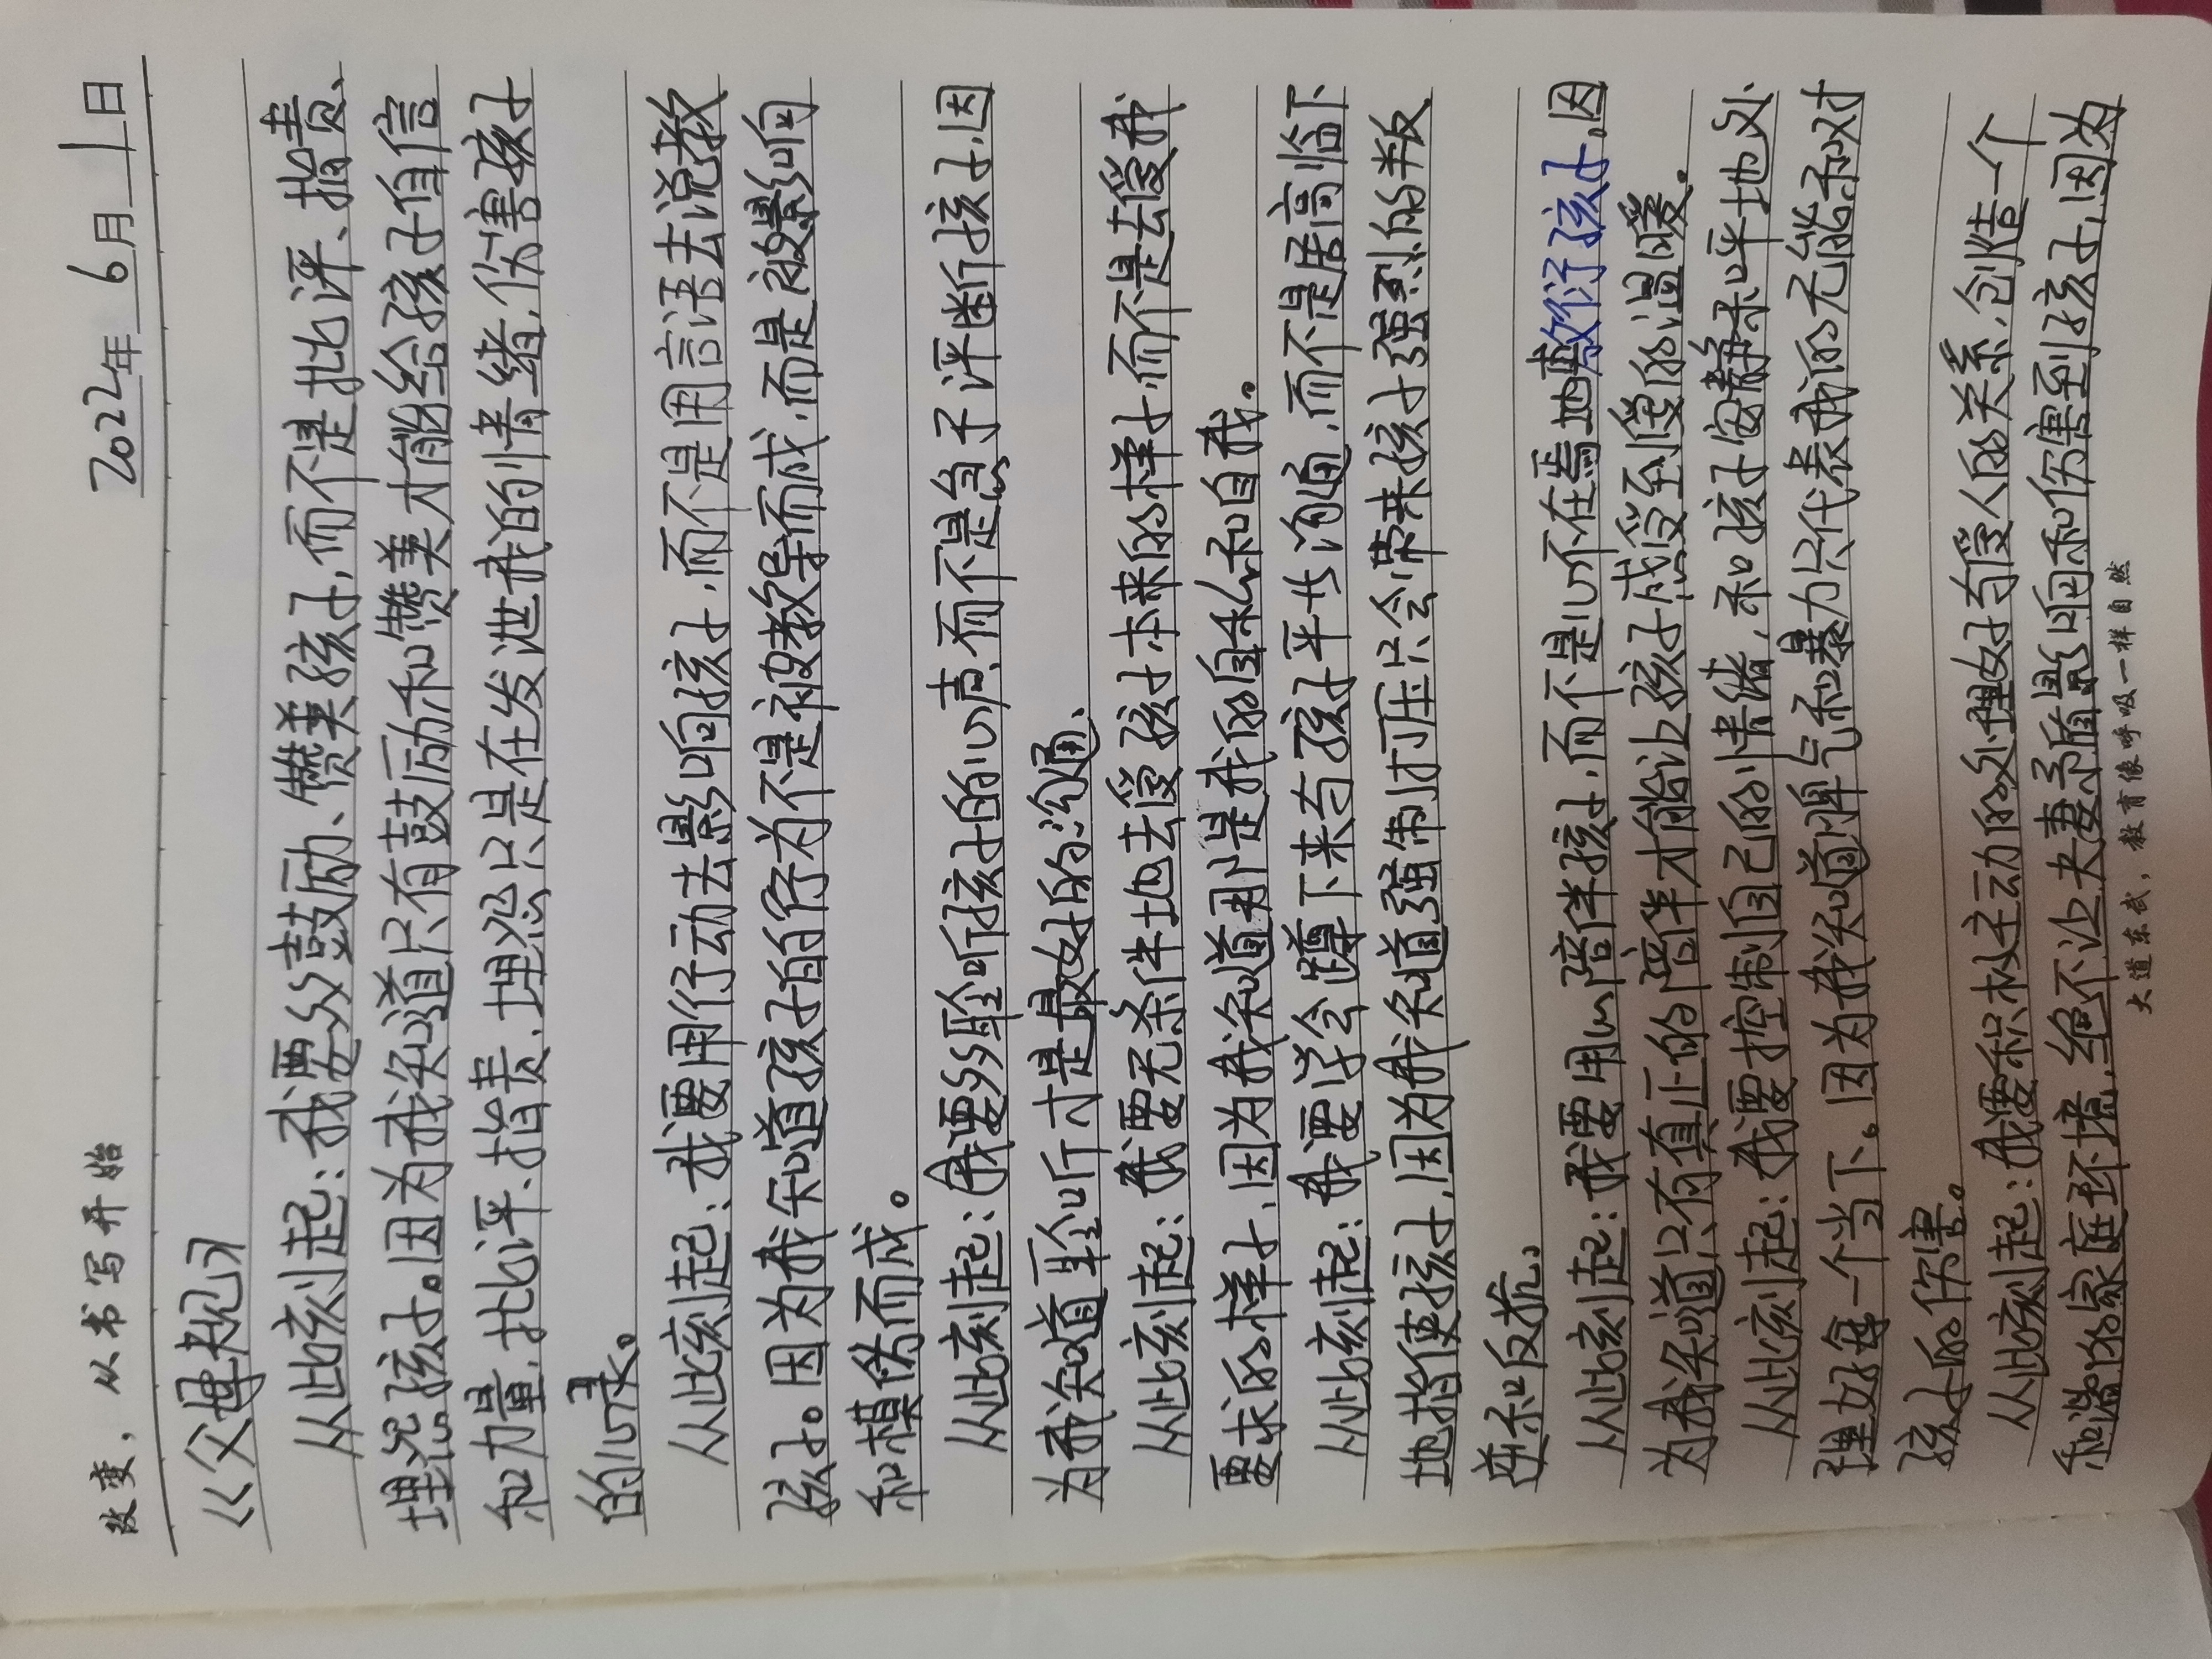 改变，从书写开始
2022年6月1日
《父母规》
从此刻起：我要多鼓励、赞美孩子，而不是批评、指责、
埋怨孩子。因为我知道只有鼓励和赞美才能给孩子自信
和力量，批评、指责、埋怨只是在发泄我的情绪，伤害孩子
的心灵。
从此刻起：我要用行动去影响孩子，而不是用言语去说教
孩子。因为我知道孩子的行为不是被教导而成，而是被影响
和模仿而成。
从此刻起：我要多聆听孩子的心声，而不是急于评断孩子，因
为我知道聆听才是最好的沟通、
从此刻起：我要无条件地去爱孩子本来的样子，而不是去爱我
要求的样子，因为我知道那是我的自私和自我。
从此刻起：我要学会蹲下来与孩子平步沟通，而不是居高临下
地指使孩子，因为我知道强制打压只会带来孩子强烈的叛
逆和反抗。
从此刻起：我要用心陪伴孩子，而不是心不在焉地敷衍孩子，因
为我知道只有真正的陪伴才能让孩子感受到爱的温暖。
从此刻起：我要控制自己的情绪，和孩子安静和平地处
理好每一个当下。因为我知道脾气和暴力只代表我的无能和对
孩子的伤害。
从此刻起：我要积极主动的处理好与爱人的关系，创造一个
和谐的家庭环境，绝不让夫妻矛盾影响和伤害到孩子，因为
大道东武，教育像呼吸一样自然